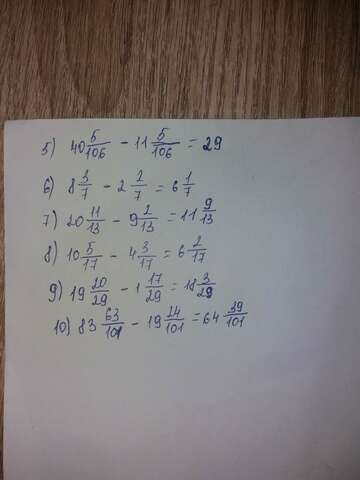 5) 40 5/106 - 11 5/106 = 29
6) 8 3/7 - 2 2/7 = 6 1/7
7) 20 11/13 - 9 2/13 = 11 9/13
8) 10 5/17 - 4 3/17 = 6 2/17
9) 19 20/29 - 1 17/29 = 18 3/29
10) 83 63/101 - 19 24/101 = 64 39/101